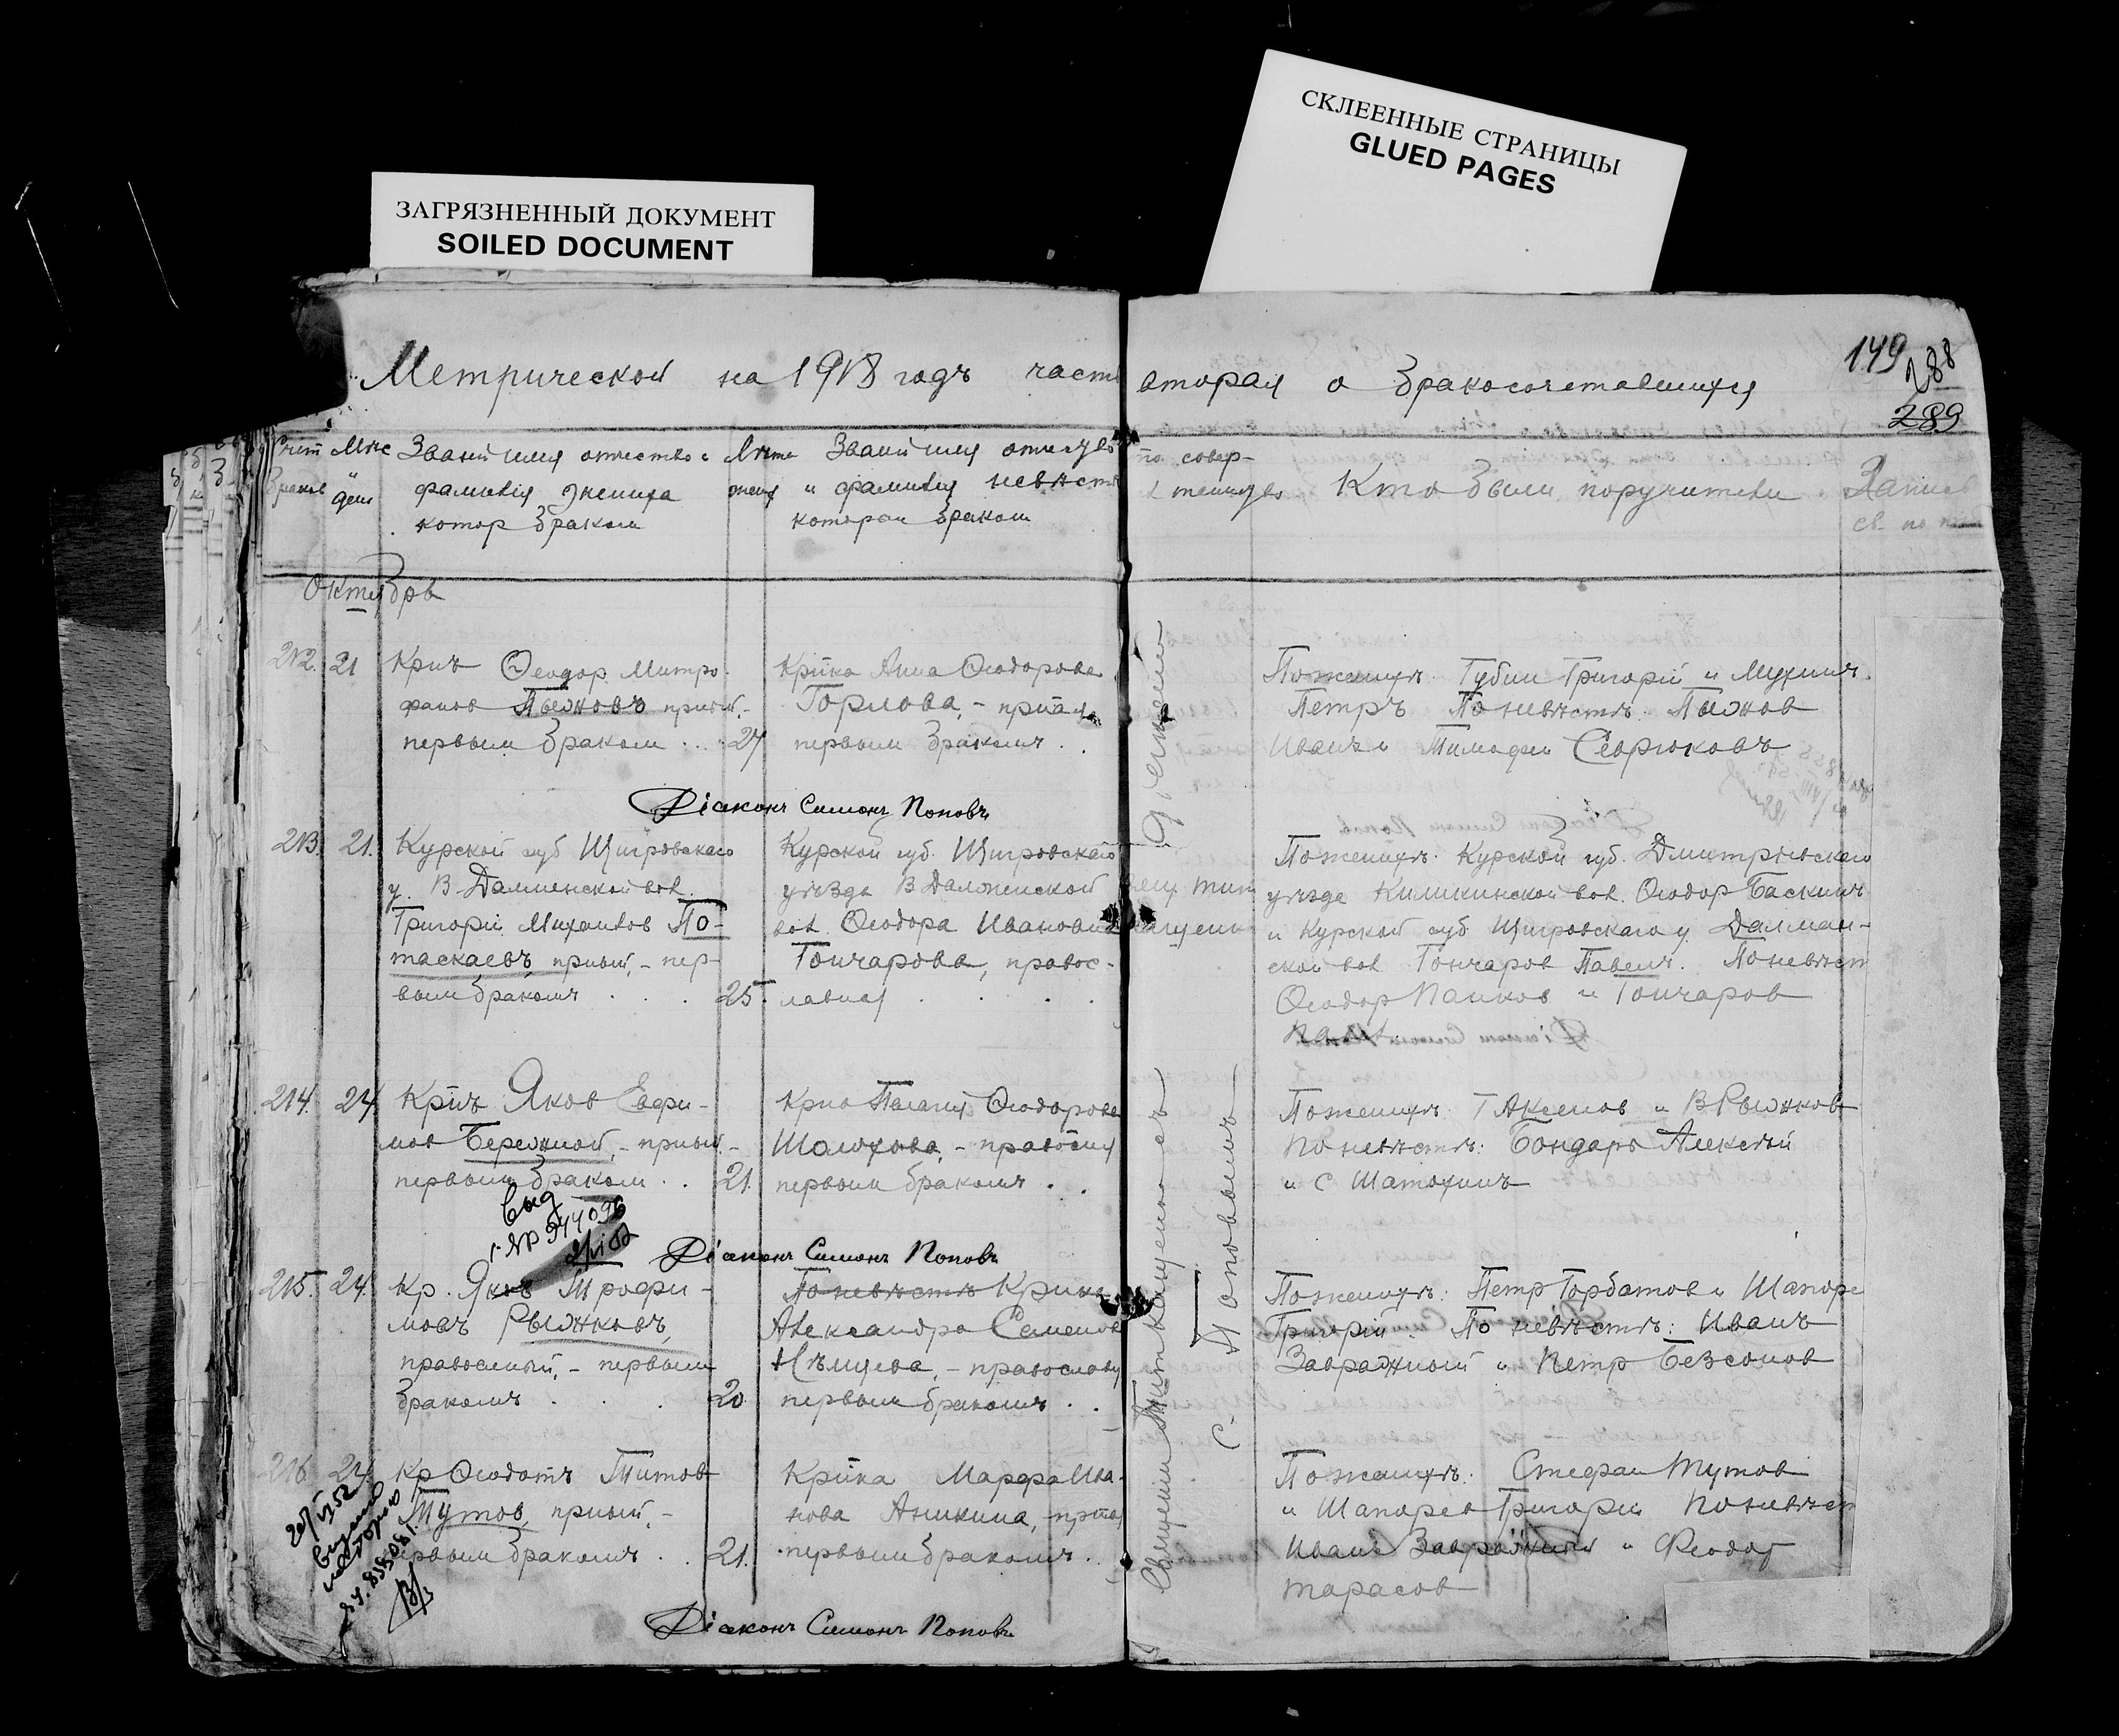 ЗАГРЯЗНЕННЫЙ ДОКУМЕНТ
SOILED DOCUMENT
СКЛЕЕННЫЕ СТРАНИЦЫ
GLUED PAGES
149
288
289
Метрической на 1918 годъ часть вторая о бракосочетавшихся
Счет браков
Мѣс и день
Званіе имя отчество и
фамилія жениха
котор браком
Лѣта
жених
Званіе имя отчество
и фамилія невѣст
котором браком
по совер-
Кто были поручители
Запис
Октябрь
212. 21 Кр̅нъ Ѳеодор Митро-
фанов Пыжковъ
первым браком . . . 27
Кр̅нка Анна Ѳеодорова
Горлова, -
первым бракомъ . .
По женихѣ: Губин Григорій и Мухинъ
Петръ По невѣстѣ: Пыжков
Иванъ и Тимофей Севрюковъ
Діаконъ Симонъ Поповъ
213. 21. Курской губ Щигровскаго
у. В-Далменской вол.
Григорій Михаилов По-
таскаевъ, - пер-
вым бракомъ . . . 25.
Курской губ. Щигровскаго
уѣзда В Далменской
вол. Ѳеодора Иванови
Гончарова, правос-
лавная . . . .
По женихѣ: Курской губ. Дмитріевскаго
уѣзда вол. Ѳеодор Баскинъ
и Курской губ Щигровскаго у. Далмен-
ской вол Гончаров Павелъ. По невѣст
Ѳеодор Папков и Гончаров
214. 24 Кр̅нъ Яков Евфи-
мов Бережной, -
первым браком . . 21.
Шолохова, -
первым бракомъ . .
По женихѣ: Г Аксенов и В Рыжков
По невѣстѣ: Бондарь Алексѣй
и С Шатохинъ
выд
Діаконъ Симонъ Поповъ
215. 24. Кр. Яков Трофи-
мовъ Рыжковъ,
православный, - первым
бракомъ . . . 20
По невѣстѣ Кр̅нка
Александра Семенов
Нѣмцева, - православн
первым бракомъ . .
По женихѣ: Петр Горбатов и Шапоре
Григорій. По невѣстѣ: Иванъ
Завражной и Петр Безсонов
216 24. Кр Ѳеодотъ Титов
Тутов,
первым бракомъ . . 21.
Кр̅нка Марфа Ива-
нова Аникина, -
первым бракомъ . .
По женихѣ: Стефан Тутов
и Шапорев Григорій По невѣст
Иван Завражный и Феодот
Тарасов
Діаконъ Симонъ Поповъ
Священник
с. Поповымъ